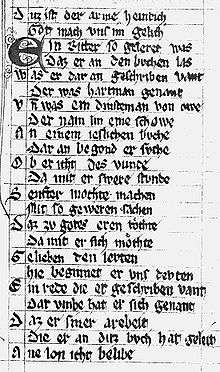 Ditz ist der arme heinrich
Got mach uns im gelich
Ein Ritter so geleret was
Daz er an den bochen las
Waz er dar an geschriben vant
Der was hartman genant
Vnd was ein dinstman von owe
Der nam im eine schowe
An einem ieslichen buche
Dar an begond er suche
Ob er icht des vunde
Da mit er swere stunde
Senfter mochte machen
Mit so geweren sachen
Daz zu gotes eren tochte
Da mit er sich mochte
Gelieben den levten
hie beginnet er uns devten
Ein rede die er geschriben vant
Dar vmbe hat er sich genant
Daz er siner arebeit
Die er an ditz buch hat geleit
Ane lon icht belibe